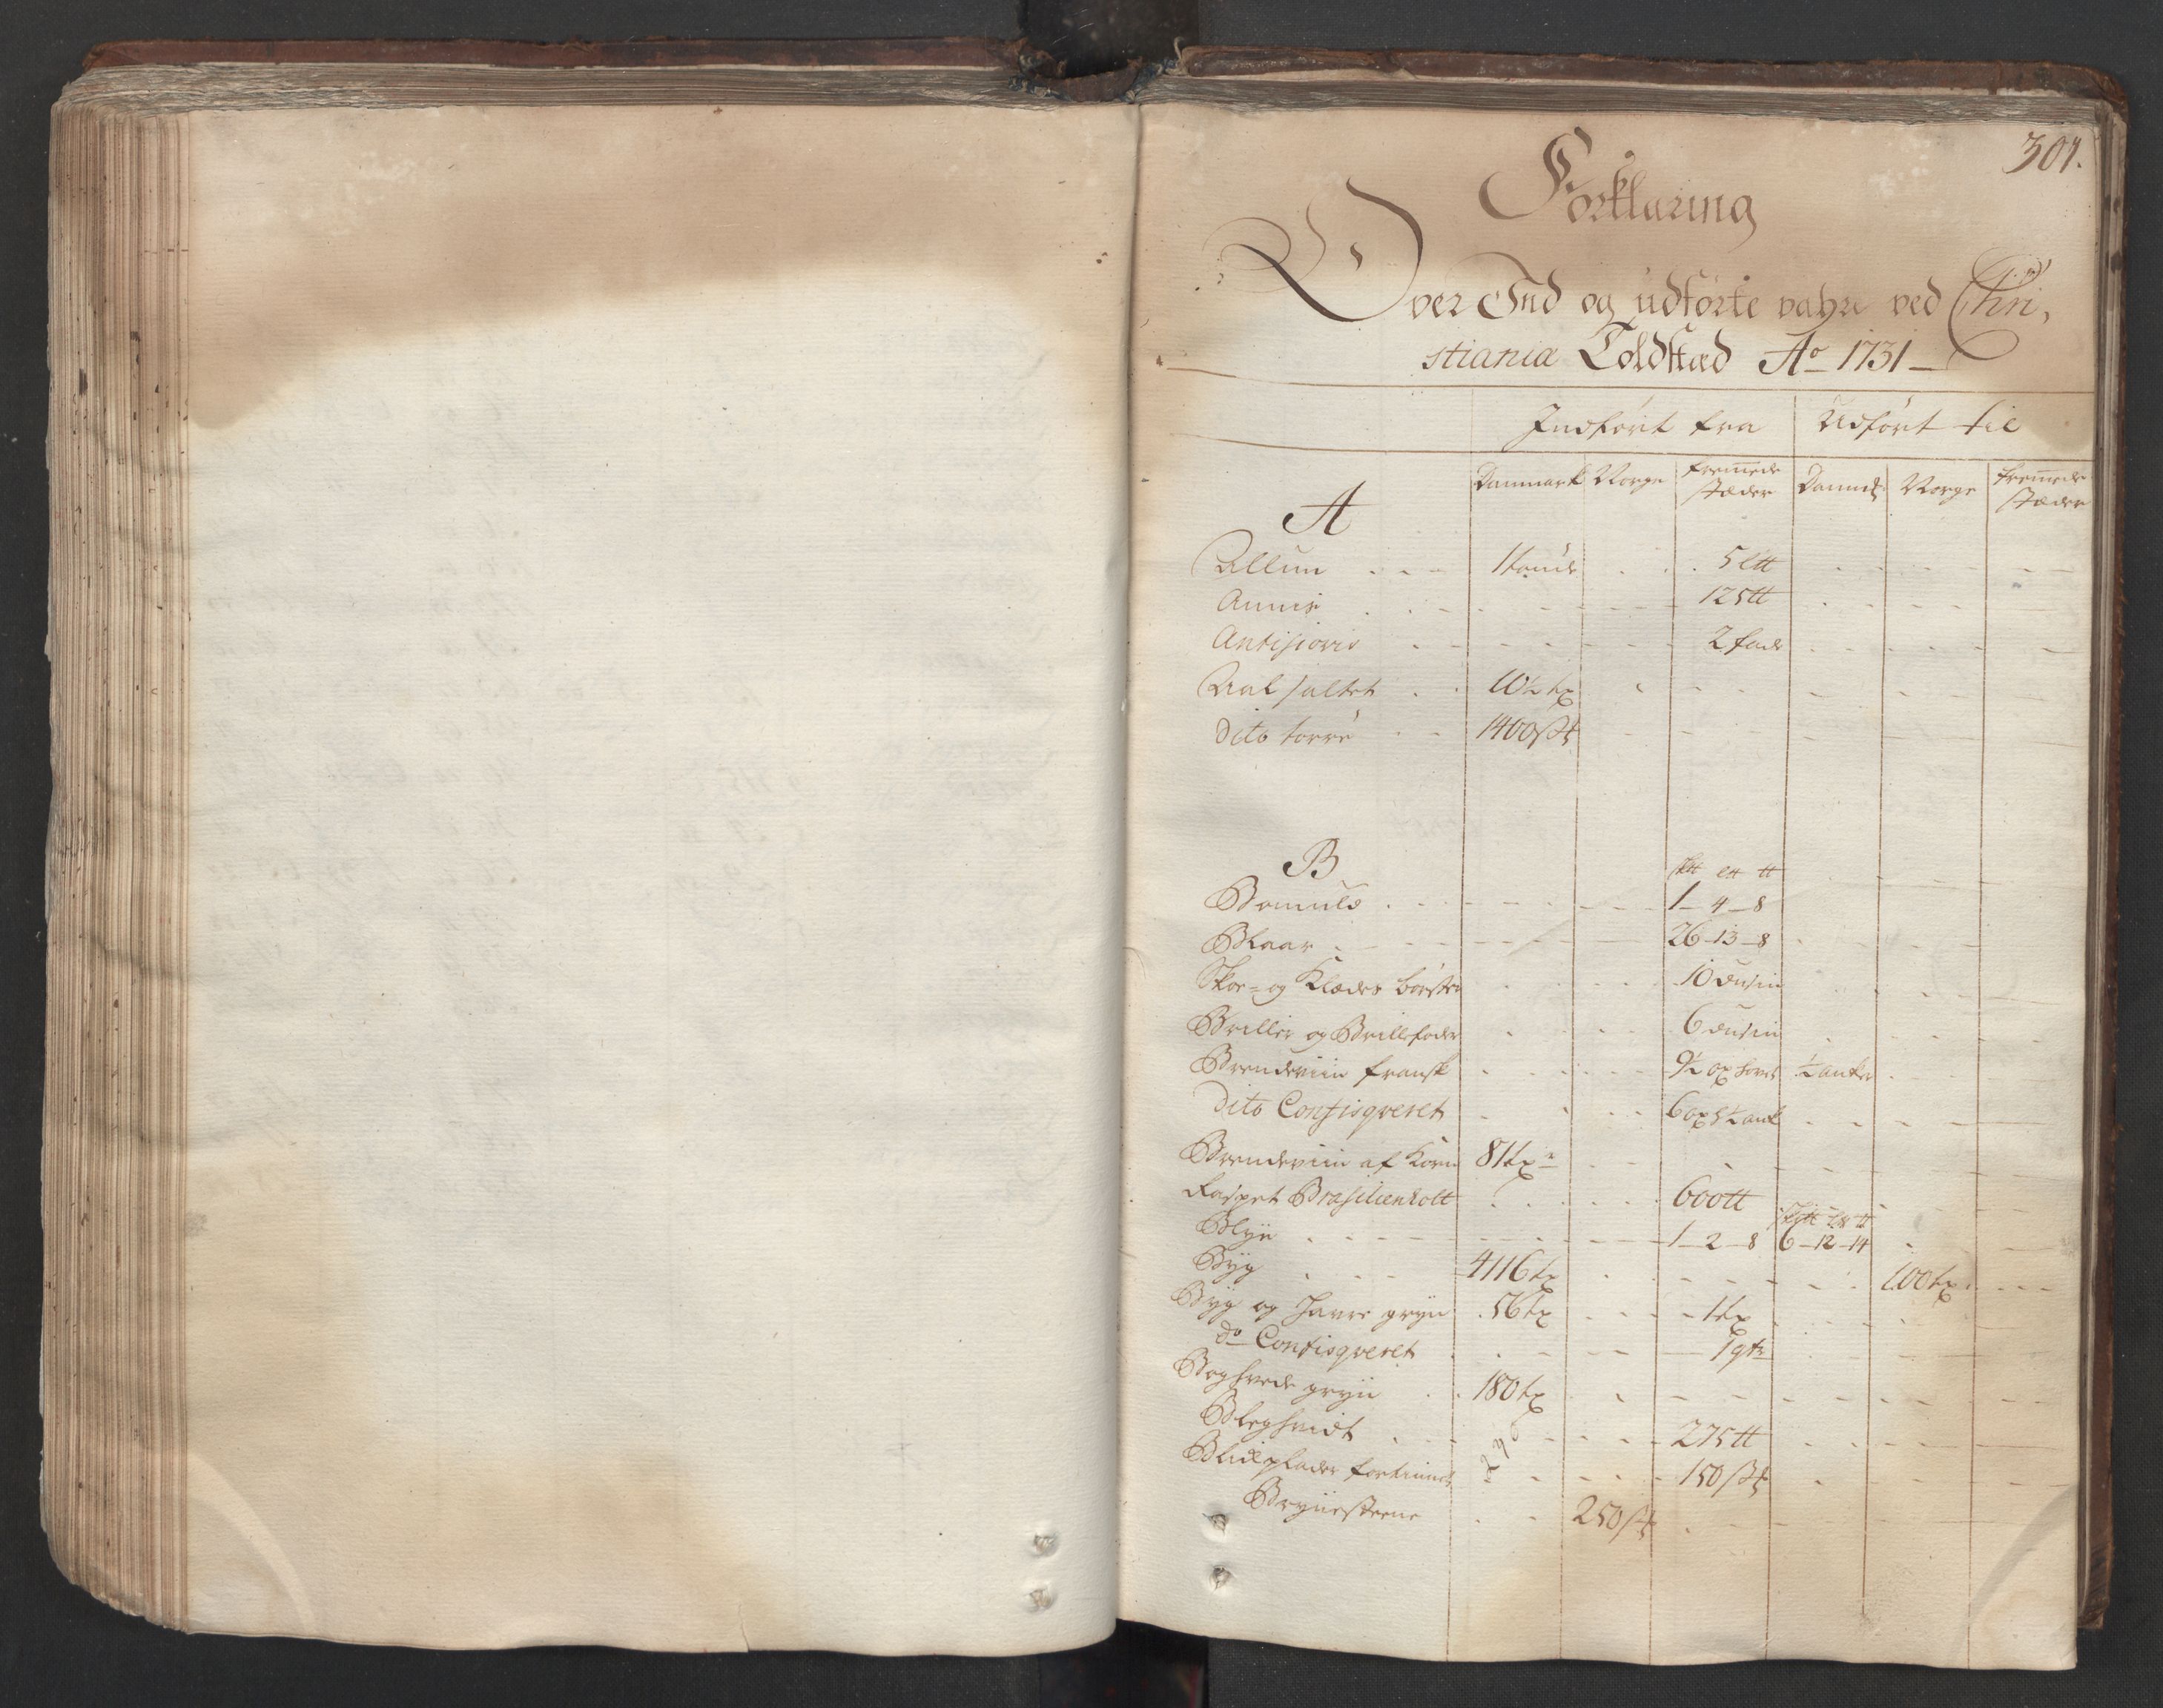 307.
Forklaring
Over Ind og udførte vahre ved Chri,
stiania Toldstæd Ao 1731
Indført fra Udført til
Danmark Norge fremede stæder Danmk Norge fremede stæder
A
Allun 1 tønde 5 L℔
Annis 125 ℔
Antisiovis 2 fade
Aal saltet 10½ tr
Dito tørre 1400 st
B
Sk℔ L℔ ℔
Bomuld 1 - 4 - 8
Blaar 26 - 13 - 8
Skoe- og Klæder børster 10 dusin
Briller og Brillefoder 6 dusin
Brendeviin fransk 9½ oxhovet ½ anker
Dito Confisqveret 6 ox 5½ ank
Brendeviin af Korn 81 tr
Raspet Brasilienholt 600 ℔ Sk℔ L℔ ℔
Blye 1 - 2 - 8 6 - 12 - 14
Byg 4116 tr 100 tr
Byg og Havre gryn 56 tr 1 tr
do Confisqveret 1 qtr
Boghvede gryn 180 tr
Bleghvidt 275 ℔
Blikplader fortinnet 150 st
Brynesteene 250 st